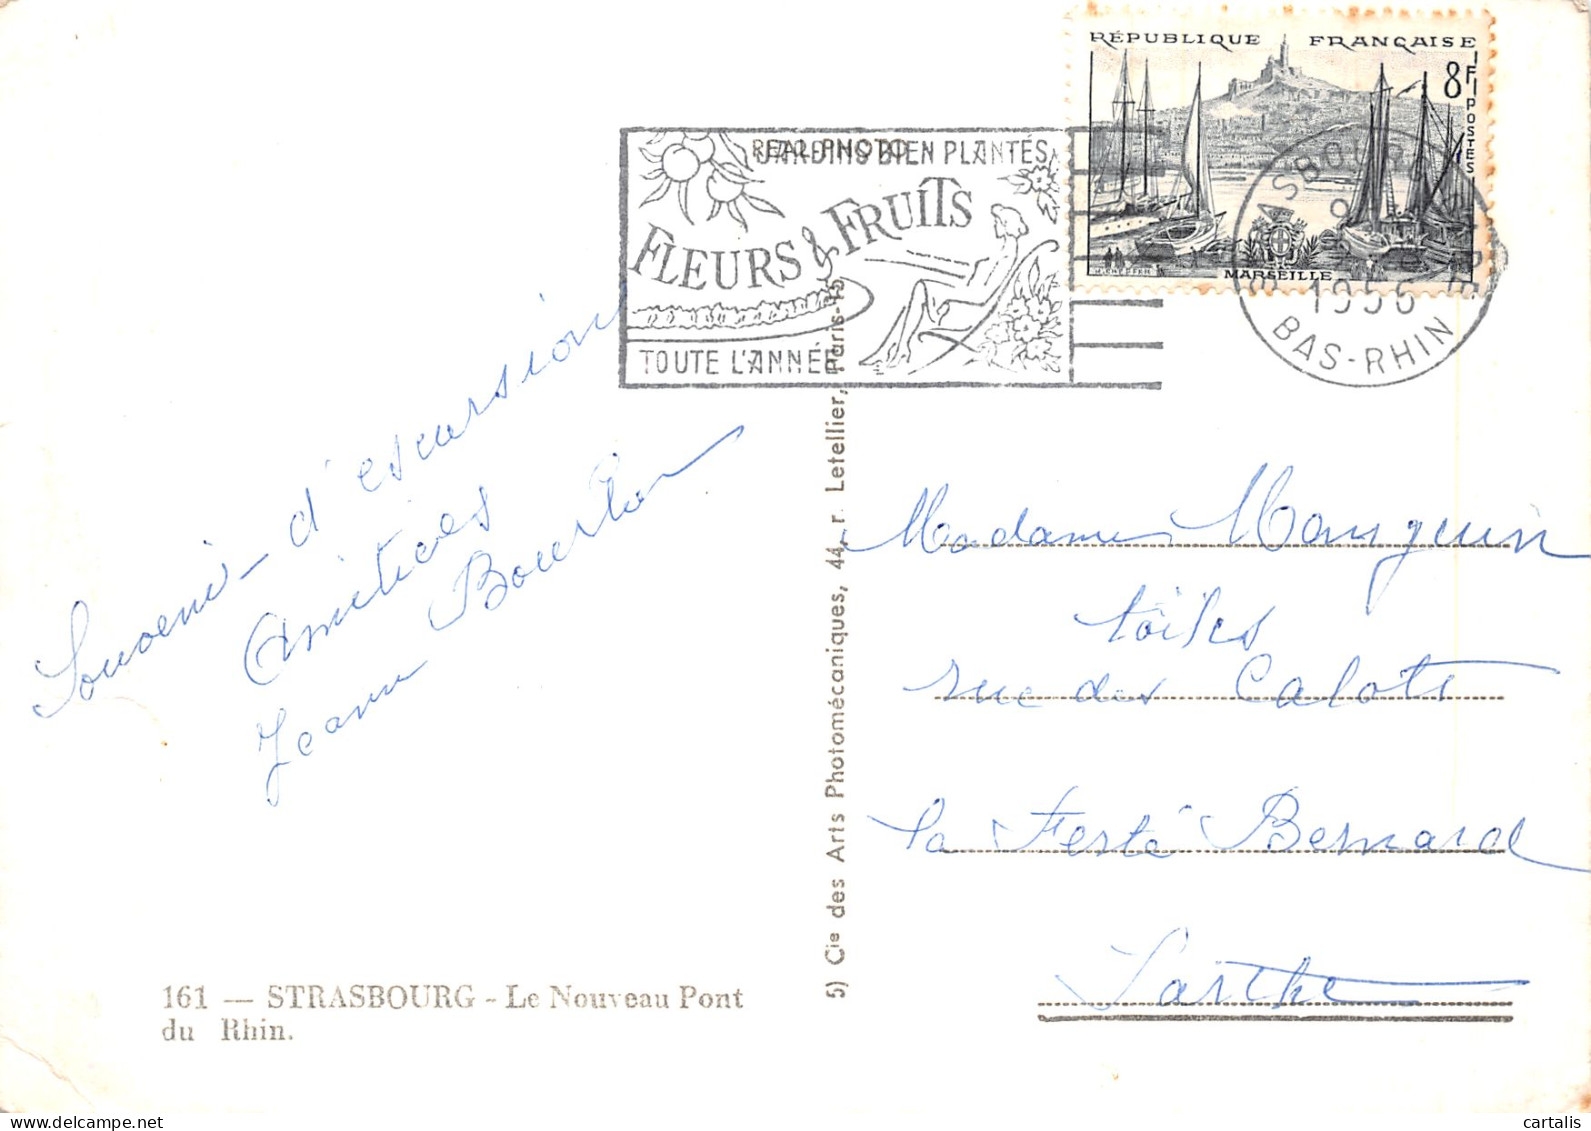 RÉPUBLIQUE FRANÇAISE
8F
POSTES
MARSEILLE
REAL PHOTO
JARDINS BIEN PLANTÉS
FLEURS & FRUITS
TOUTE L'ANNÉE
STRASBOURG GARE
1956
BAS-RHIN
Souvenir d'escursion
Amitiés
Jeanne
Madame Mauguin
toiles
rue des Calots
la Ferté Bernard
Sarthe
5) Cie des Arts Photomécaniques, 44, r. Letellier, Paris-15
161 — STRASBOURG - Le Nouveau Pont
du Rhin.
cartalis